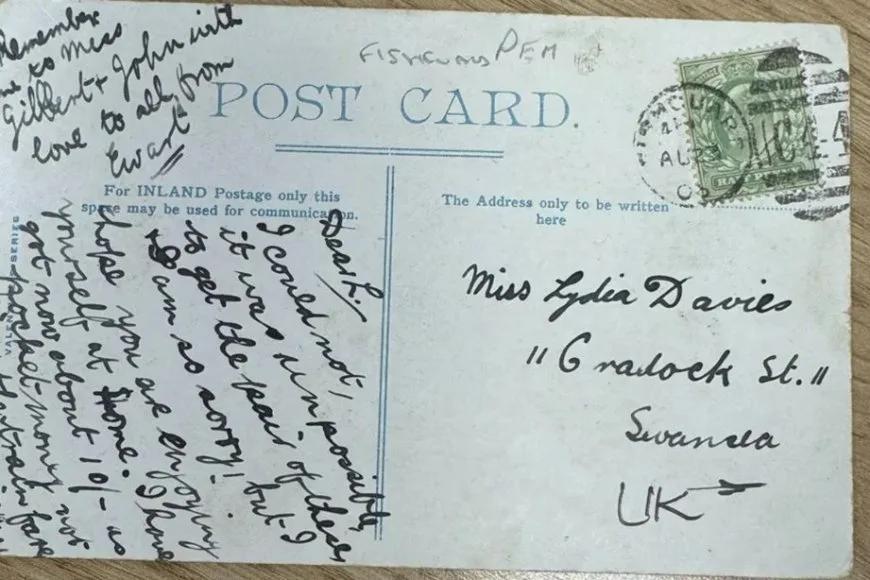 Remember
me to Miss
Gilbert & John with
love to all from
Ewart
PEM
POST CARD.
For INLAND Postage only this
space may be used for communication.
The Address only to be written
here
Dear L.
I could not,
it was un-possible,
to get the pair of these
& I am so sorry! but I
hope you are enjoying
yourself at Home. I have
got now about 10/- as
pocket money not
train fare
Miss Lydia Davies
"Cradock St."
Swansea
UK
AU
VALENTINES SERIES